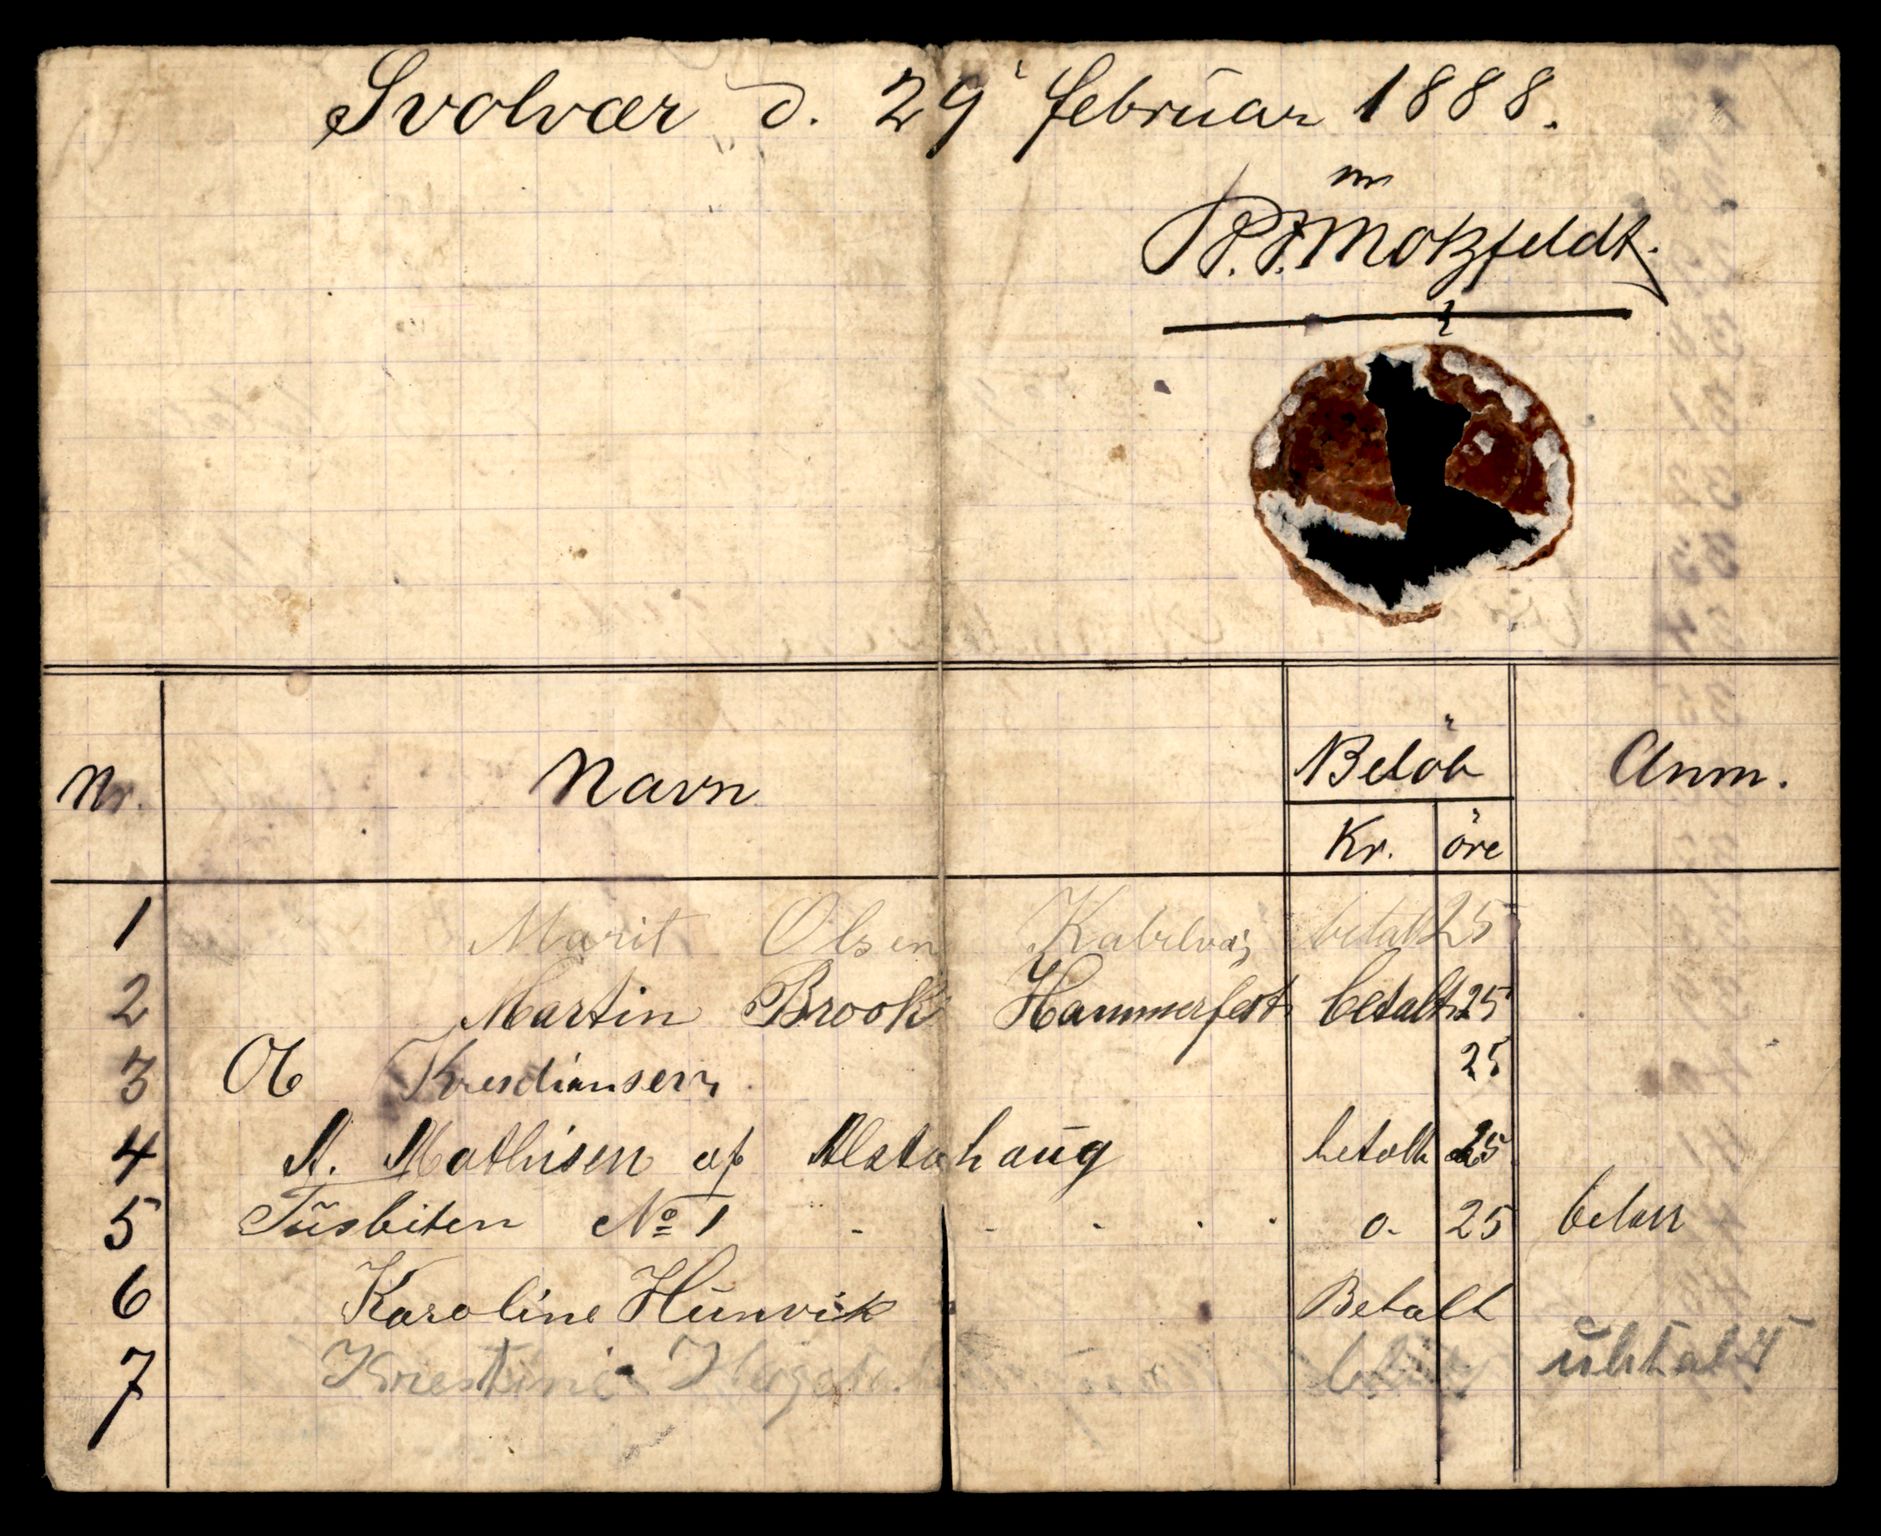 Svolvær d. 29 februar 1888.
P. F. Motzfeldt.
Nr. Navn Belöb Anm.
Kr. öre
1 Marit Olsen Kabelvåg betalt 25
2 Martin Brook Hammerfest betalt 25
3 Ol Kresdiansen 25
4 A. Mathisen af Alstahaug betalt 25
5 Tusbiten No 1 - - - . . 0. 25 betalt
6 Karoline Hunvik Betalt
7 Krestine ubetalt